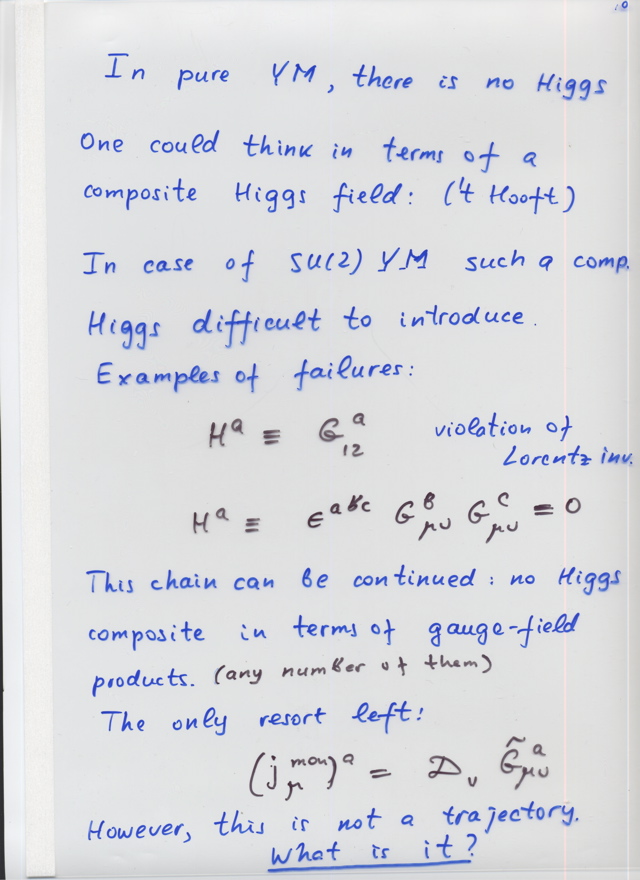 In pure YM, there is no Higgs
One could think in terms of a
composite Higgs field: ('t Hooft)
In case of SU(2) YM such a comp.
Higgs difficult to introduce.
Examples of failures:
H^a ≡ G_{12}^a violation of
Lorentz inv.
H^a ≡ ε^{abc} G_{μν}^b G_{μν}^c ≡ 0
This chain can be continued: no Higgs
composite in terms of gauge-field
products. (any number of them)
The only resort left:
(j_μ^{mon})^a = D_ν G̃_{μν}^a
However, this is not a trajectory.
What is it?